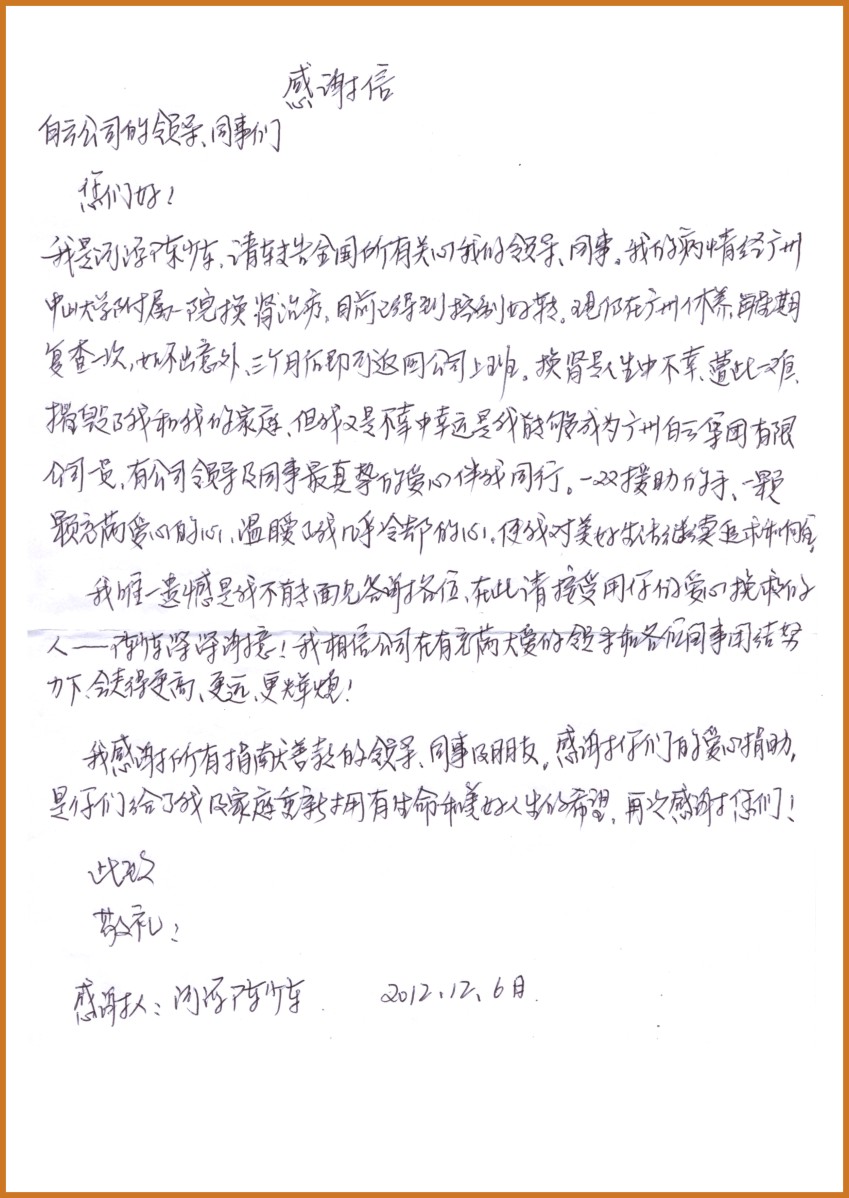 感谢信
白云公司的领导、同事们
您们好！
我是河源陈少东，请转告全国所有关心我的领导、同事。我的病情经广州
中山大学附属一院换肾治疗，目前已得到控制好转。现仍在广州休养，每星期
复查一次，如不出意外、三个月后即可返回公司上班。换肾是人生中不幸、遭此一难、
摧毁了我和我的家庭、但我又是不幸中幸运是我能够成为广州白云集团有限
公司一员，有公司领导及同事最真挚的爱心伴我同行。一双援助的手、一颗
颗充满爱心的心、温暖了我几乎冷却的心，使我对美好生活继续追求和向往，
我唯一遗憾是我不能面见答谢各位、在此请接受用仔们爱心挽救的
人——陈少东深深谢意！我相信公司在有充满大爱的领导和各位同事团结努
力下、会走得更高、更远、更辉煌！
我感谢所有捐献善款的领导、同事及朋友，感谢仔们的爱心捐助，
是仔们给了我及家庭重新拥有生命和美好人生的希望，再次感谢您们！
此致
敬礼！
感谢人：河源陈少东 2012.12.6日.